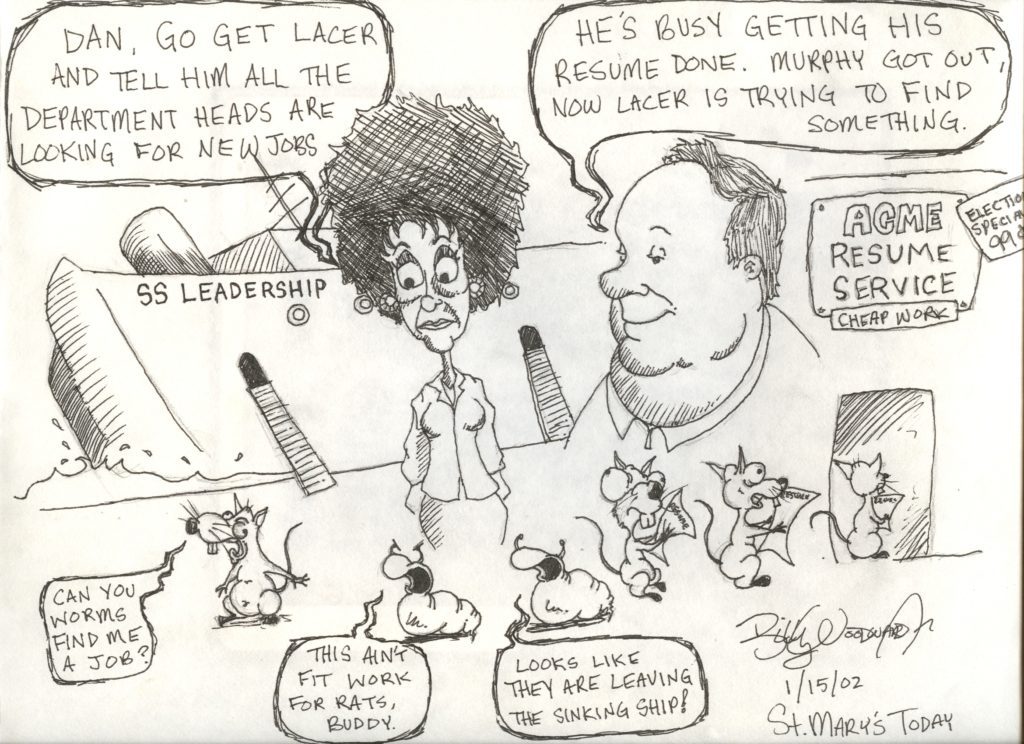 DAN, GO GET LACER
AND TELL HIM ALL THE
DEPARTMENT HEADS ARE
LOOKING FOR NEW JOBS
HE'S BUSY GETTING HIS
RESUME DONE. MURPHY GOT OUT,
NOW LACER IS TRYING TO FIND
SOMETHING.
SS LEADERSHIP
ACME
RESUME
SERVICE
CHEAP WORK
SPECIAL
CAN YOU
WORMS
FIND ME
A JOB?
THIS AIN'T
FIT WORK
FOR RATS,
BUDDY.
LOOKS LIKE
THEY ARE LEAVING
THE SINKING SHIP!
RESUME
RESUME
Woodward Jr
1/15/02
ST. MARY'S TODAY